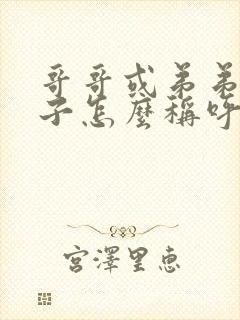 哥哥或弟弟
子怎麼稱呼
宮澤里恵